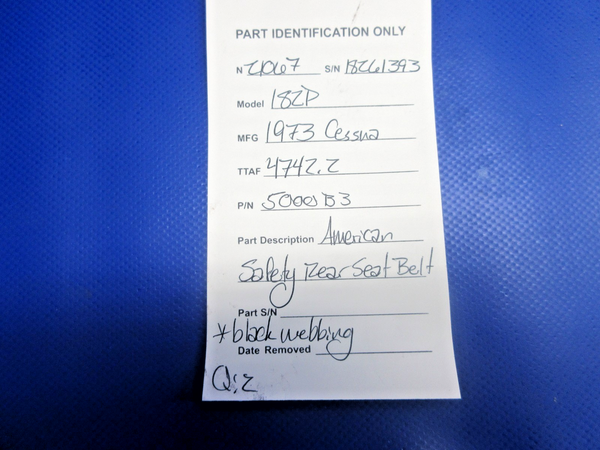 PART IDENTIFICATION ONLY
N 21067 S/N 18261393
Model 182P
MFG 1973 Cessna
TTAF 4742.2
P/N 5000B3
Part Description American
Safety Rear Seat Belt
Part S/N
*black webbing
Date Removed
Q:2